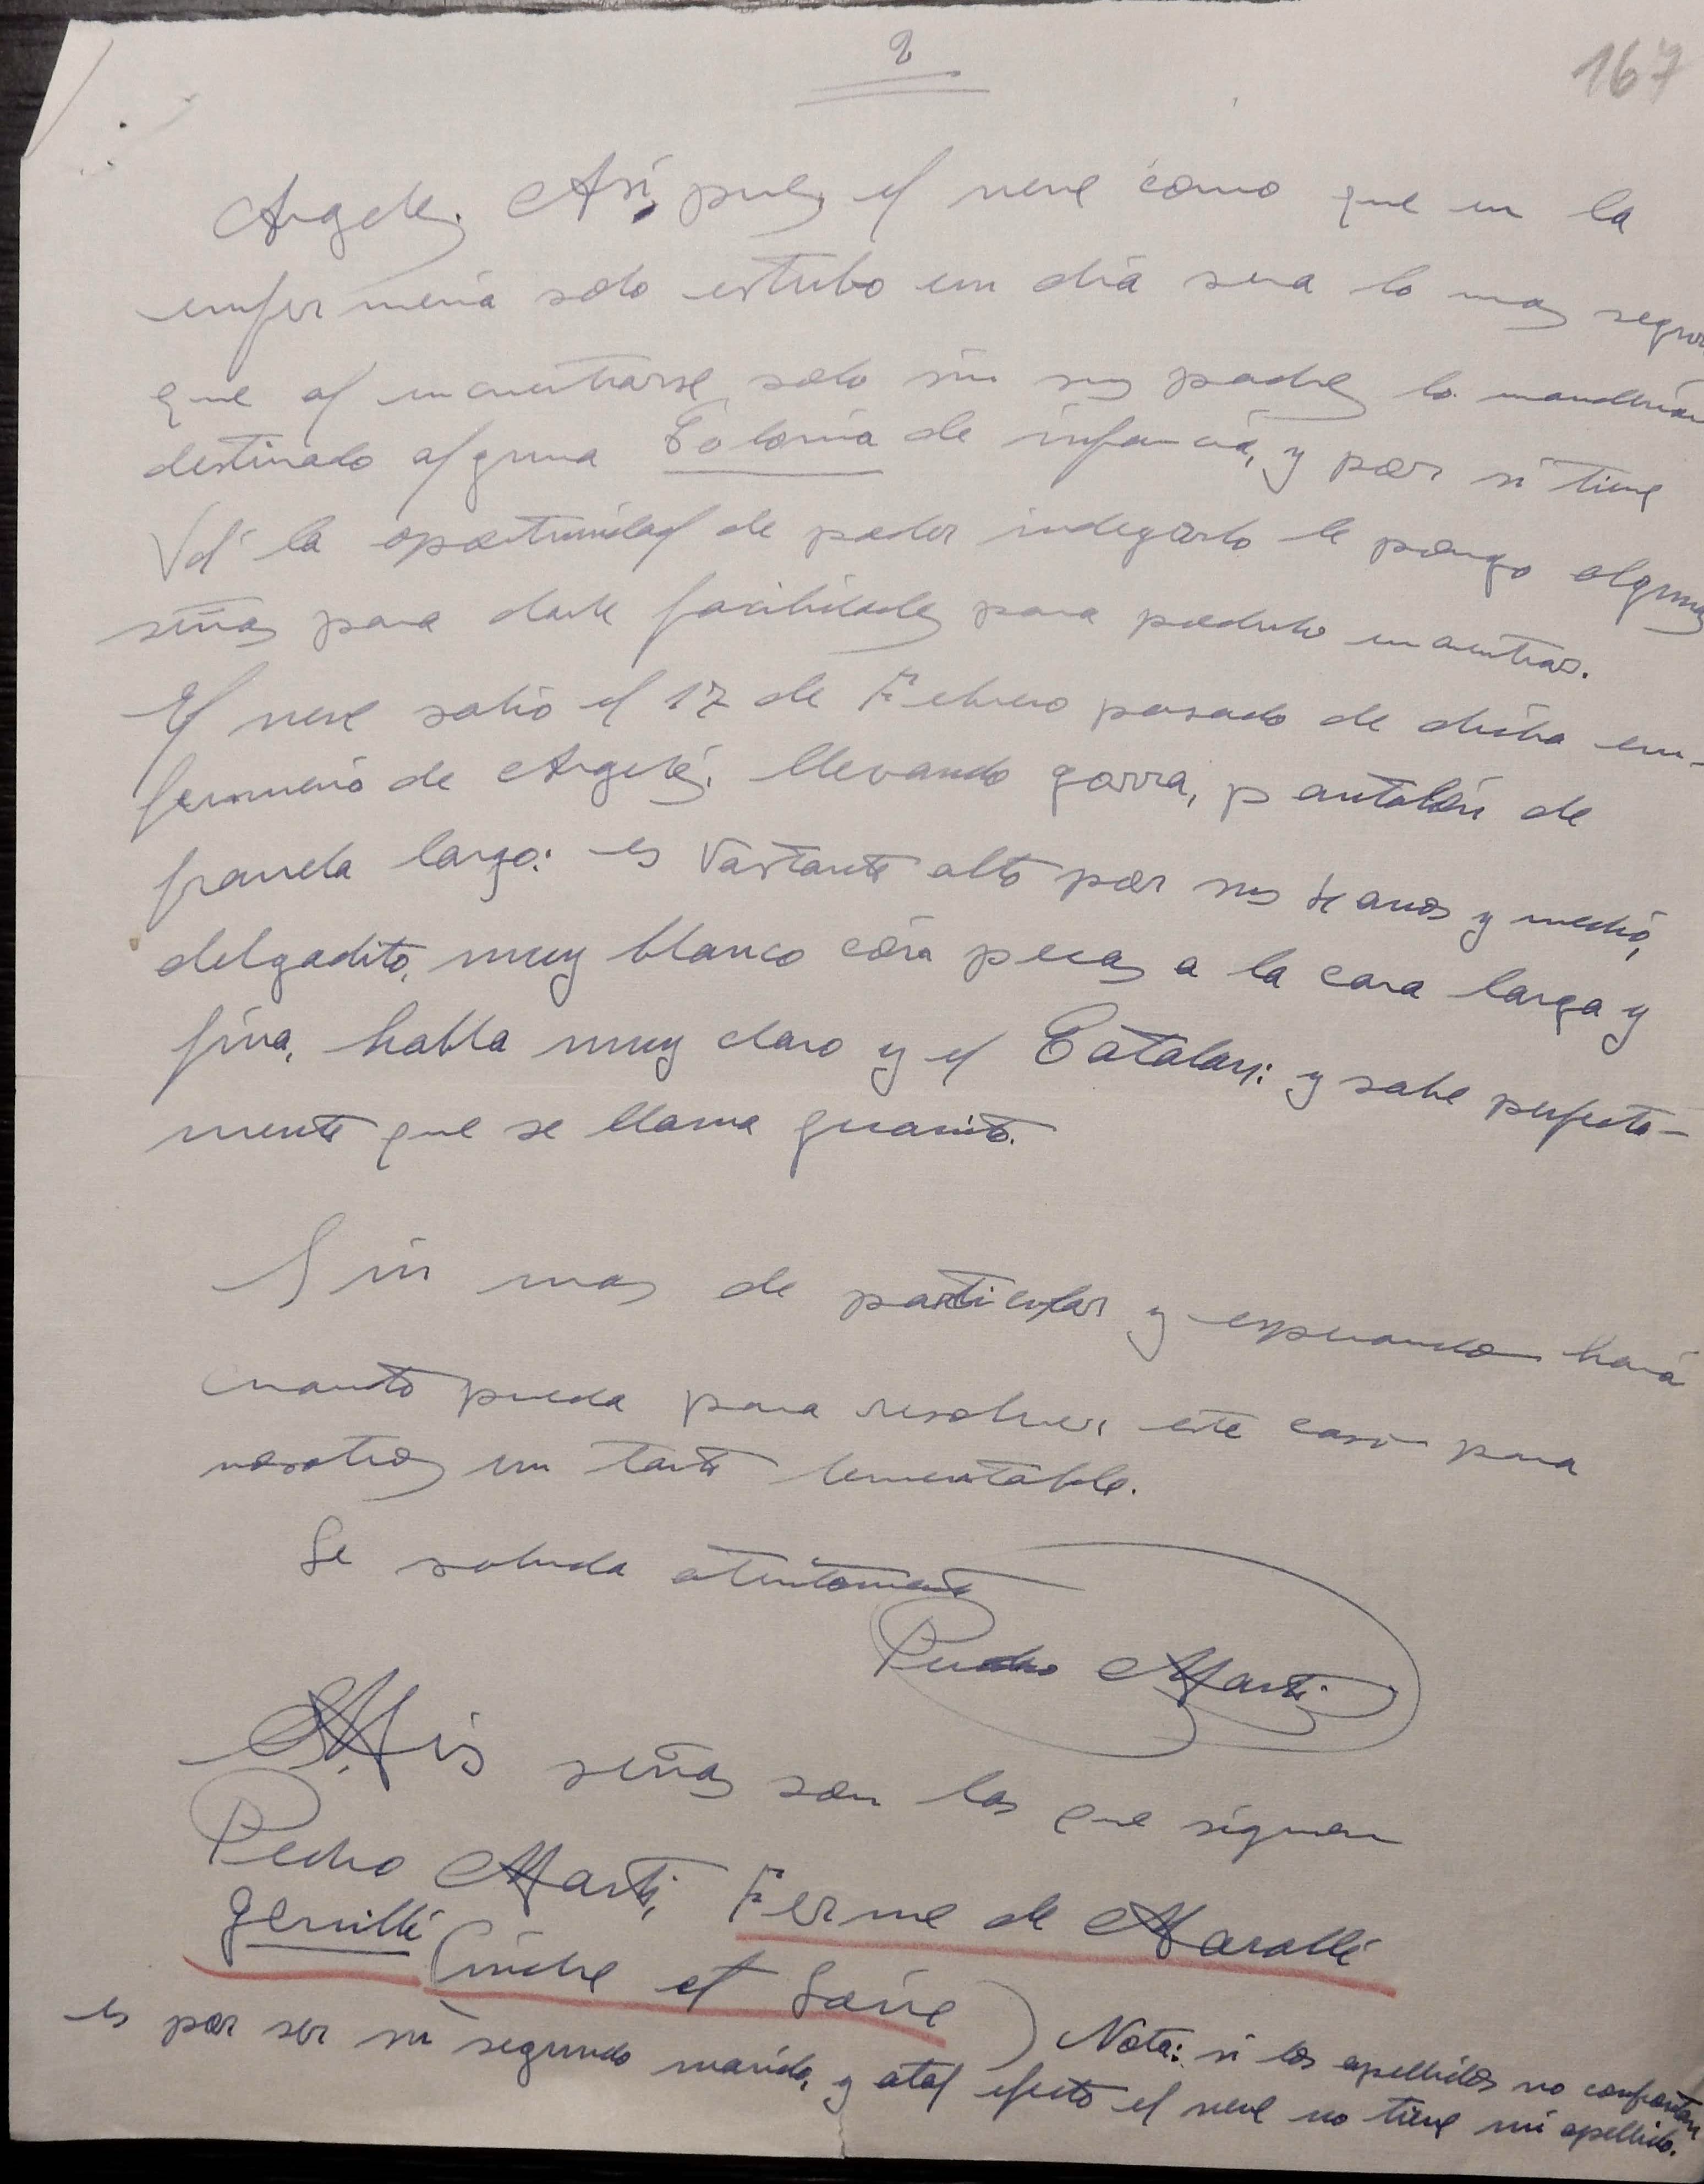 2
167
Argeles. Así, pues, el nene como que en la
enfermeria solo estubo un dia sera lo mas seguro
que al encuentrarse solo sin sus padres lo mandarian
destinado alguna Colonia de infancia, y por si tiene
Vd la oportunidad de poder indegarlo le pongo algunas
señas para darle facilidades para poderlo encuentrar.
El nene salió el 17 de Febrero pasado de dicha en-
fermeria de Argelés. llevando gorra, pantalón de
franela largo: es Vastante alto por sus 4 anos y medio,
delgadito, muy blanco con pecas a la cara larga y
fina, habla muy claro y el Catalan: y sabe perfecta-
mente que se llama Juanito.
Sin mas de particular y esperando hará
cuanto pueda para resolver este caso para
nosotros un tanto lementable.
Le saluda atentamente
Pedro Marti
Mis señas son las que siguen
Pedro Marti, Ferme de Maralle
Genillé (indre et Loire) Nota: si los apellidos no confrontan
es por ser su segundo marido, y atal efecto el nene no tiene mi apellido.